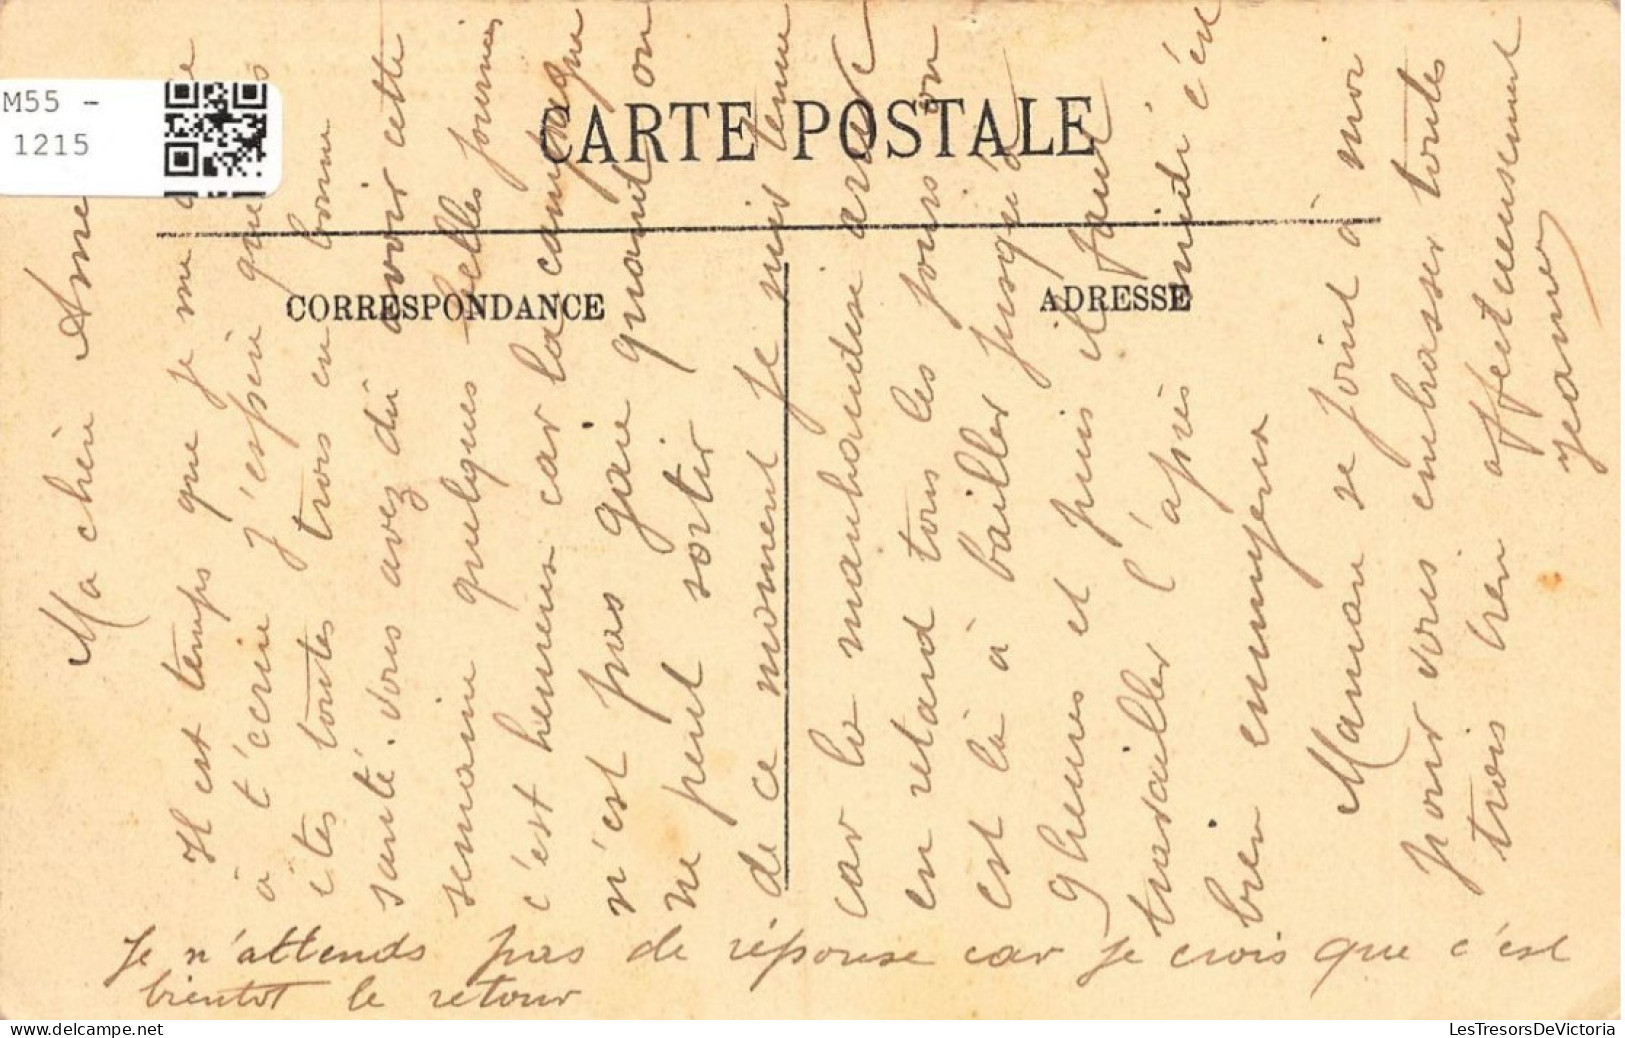 M55 -
1215
CARTE POSTALE
CORRESPONDANCE
ADRESSE
Ma chère
Il est temps que je me
à t'écrire j'espère que
êtes toutes trois en bonne
santé. vous avez dû avoir cette
semaine quelques belles journées
c'est heureux car la campagne
n'est pas gaie quant on
ne peut sortir
de ce moment je suis tenue
car la marchandise arrive
en retard tous les jours on
est là à bailler jusqu'à
9 heures et puis il faut
travailler l'après midi c'est
bien ennuyeux
Maman se joint à moi
pour vous embrasser toutes
trois bien affectueusement
Jeanne
Je n'attends pas de réponse car je crois que c'est
bientot le retour
LesTresorsDeVictoria